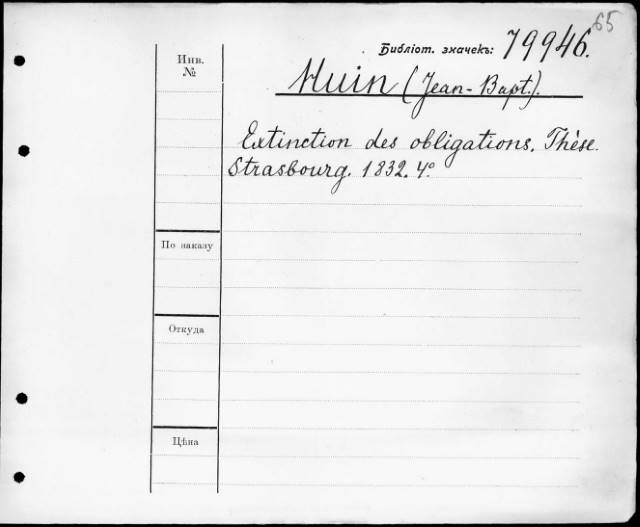 65
Библіот. значекъ: 79946.
Huin (Jean-Bapt.).
Инв. №
Extinction des obligations. Thèse.
Strasbourg. 1832. 4º
По заказу
Откуда
Цѣна